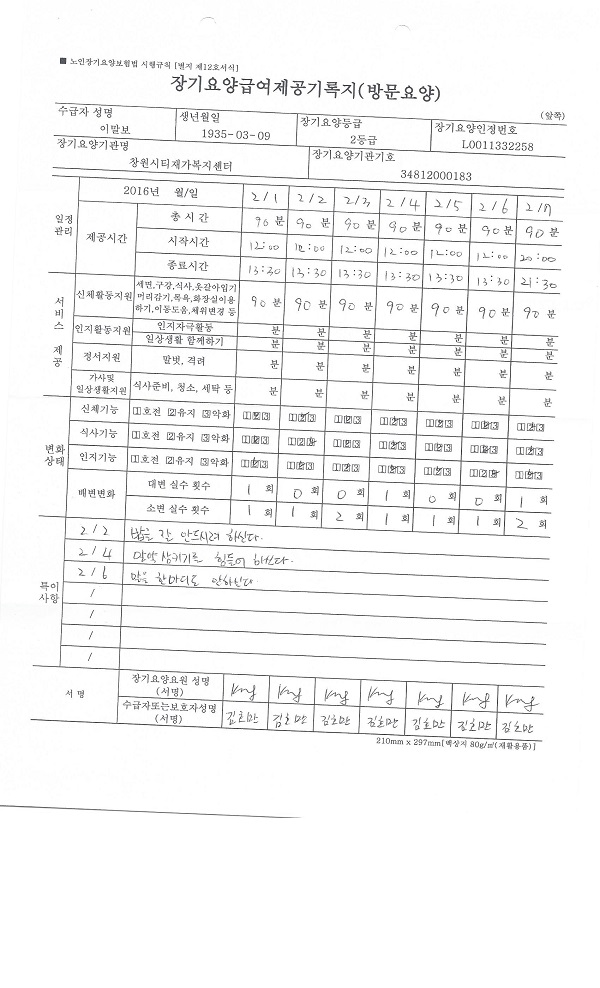 ■ 노인장기요양보험법 시행규칙 [별지 제12호서식]
장기요양급여제공기록지(방문요양)
(앞쪽)
수급자 성명 생년월일 장기요양등급 장기요양인정번호
이말보 1935-03-09 2등급 L0011332258
장기요양기관명 장기요양기관기호
창원시티재가복지센터 34812000183
일정관리 2016년 월/일 2/1 2/2 2/3 2/4 2/5 2/6 2/7
제공시간 총 시 간 90 분 90 분 90 분 90 분 90 분 90 분 90 분
시작시간 12:00 12:00 12:00 12:00 12:00 12:00 20:00
종료시간 13:30 13:30 13:30 13:30 13:30 13:30 21:30
서비스 제공 신체활동지원 세면,구강,식사,옷갈아입기
머리감기,목욕,화장실이용
하기,이동도움,체위변경 등 90 분 90 분 90 분 90 분 90 분 90 분 90 분
인지활동지원 인지자극활동 분 분 분 분 분 분 분
일상생활 함께하기 분 분 분 분 분 분 분
정서지원 말벗, 격려 분 분 분 분 분 분 분
가사및
일상생활지원 식사준비, 청소, 세탁 등 분 분 분 분 분 분 분
변화상태 신체기능 1호전 2유지 3악화 123 123 123 123 123 123 123
식사기능 1호전 2유지 3악화 123 123 123 123 123 123 123
인지기능 1호전 2유지 3악화 123 123 123 123 123 123 123
배변변화 대변 실수 횟수 1 회 0 회 0 회 1 회 0 회 0 회 1 회
소변 실수 횟수 1 회 1 회 2 회 1 회 1 회 1 회 2 회
특이사항
2/2 밥을 잘 안드시려 하신다.
2/4 만약 삼키기를 힘들어 하신다.
2/6 말을 한마디도 안하신다.
/
/
/
/
서 명 장기요양요원 성명
(서명)
수급자또는보호자성명
(서명) 김호만 김호만 김호만 김호만 김호만 김호만 김호만
210mm x 297mm[백상지 80g/㎡(재활용품)]